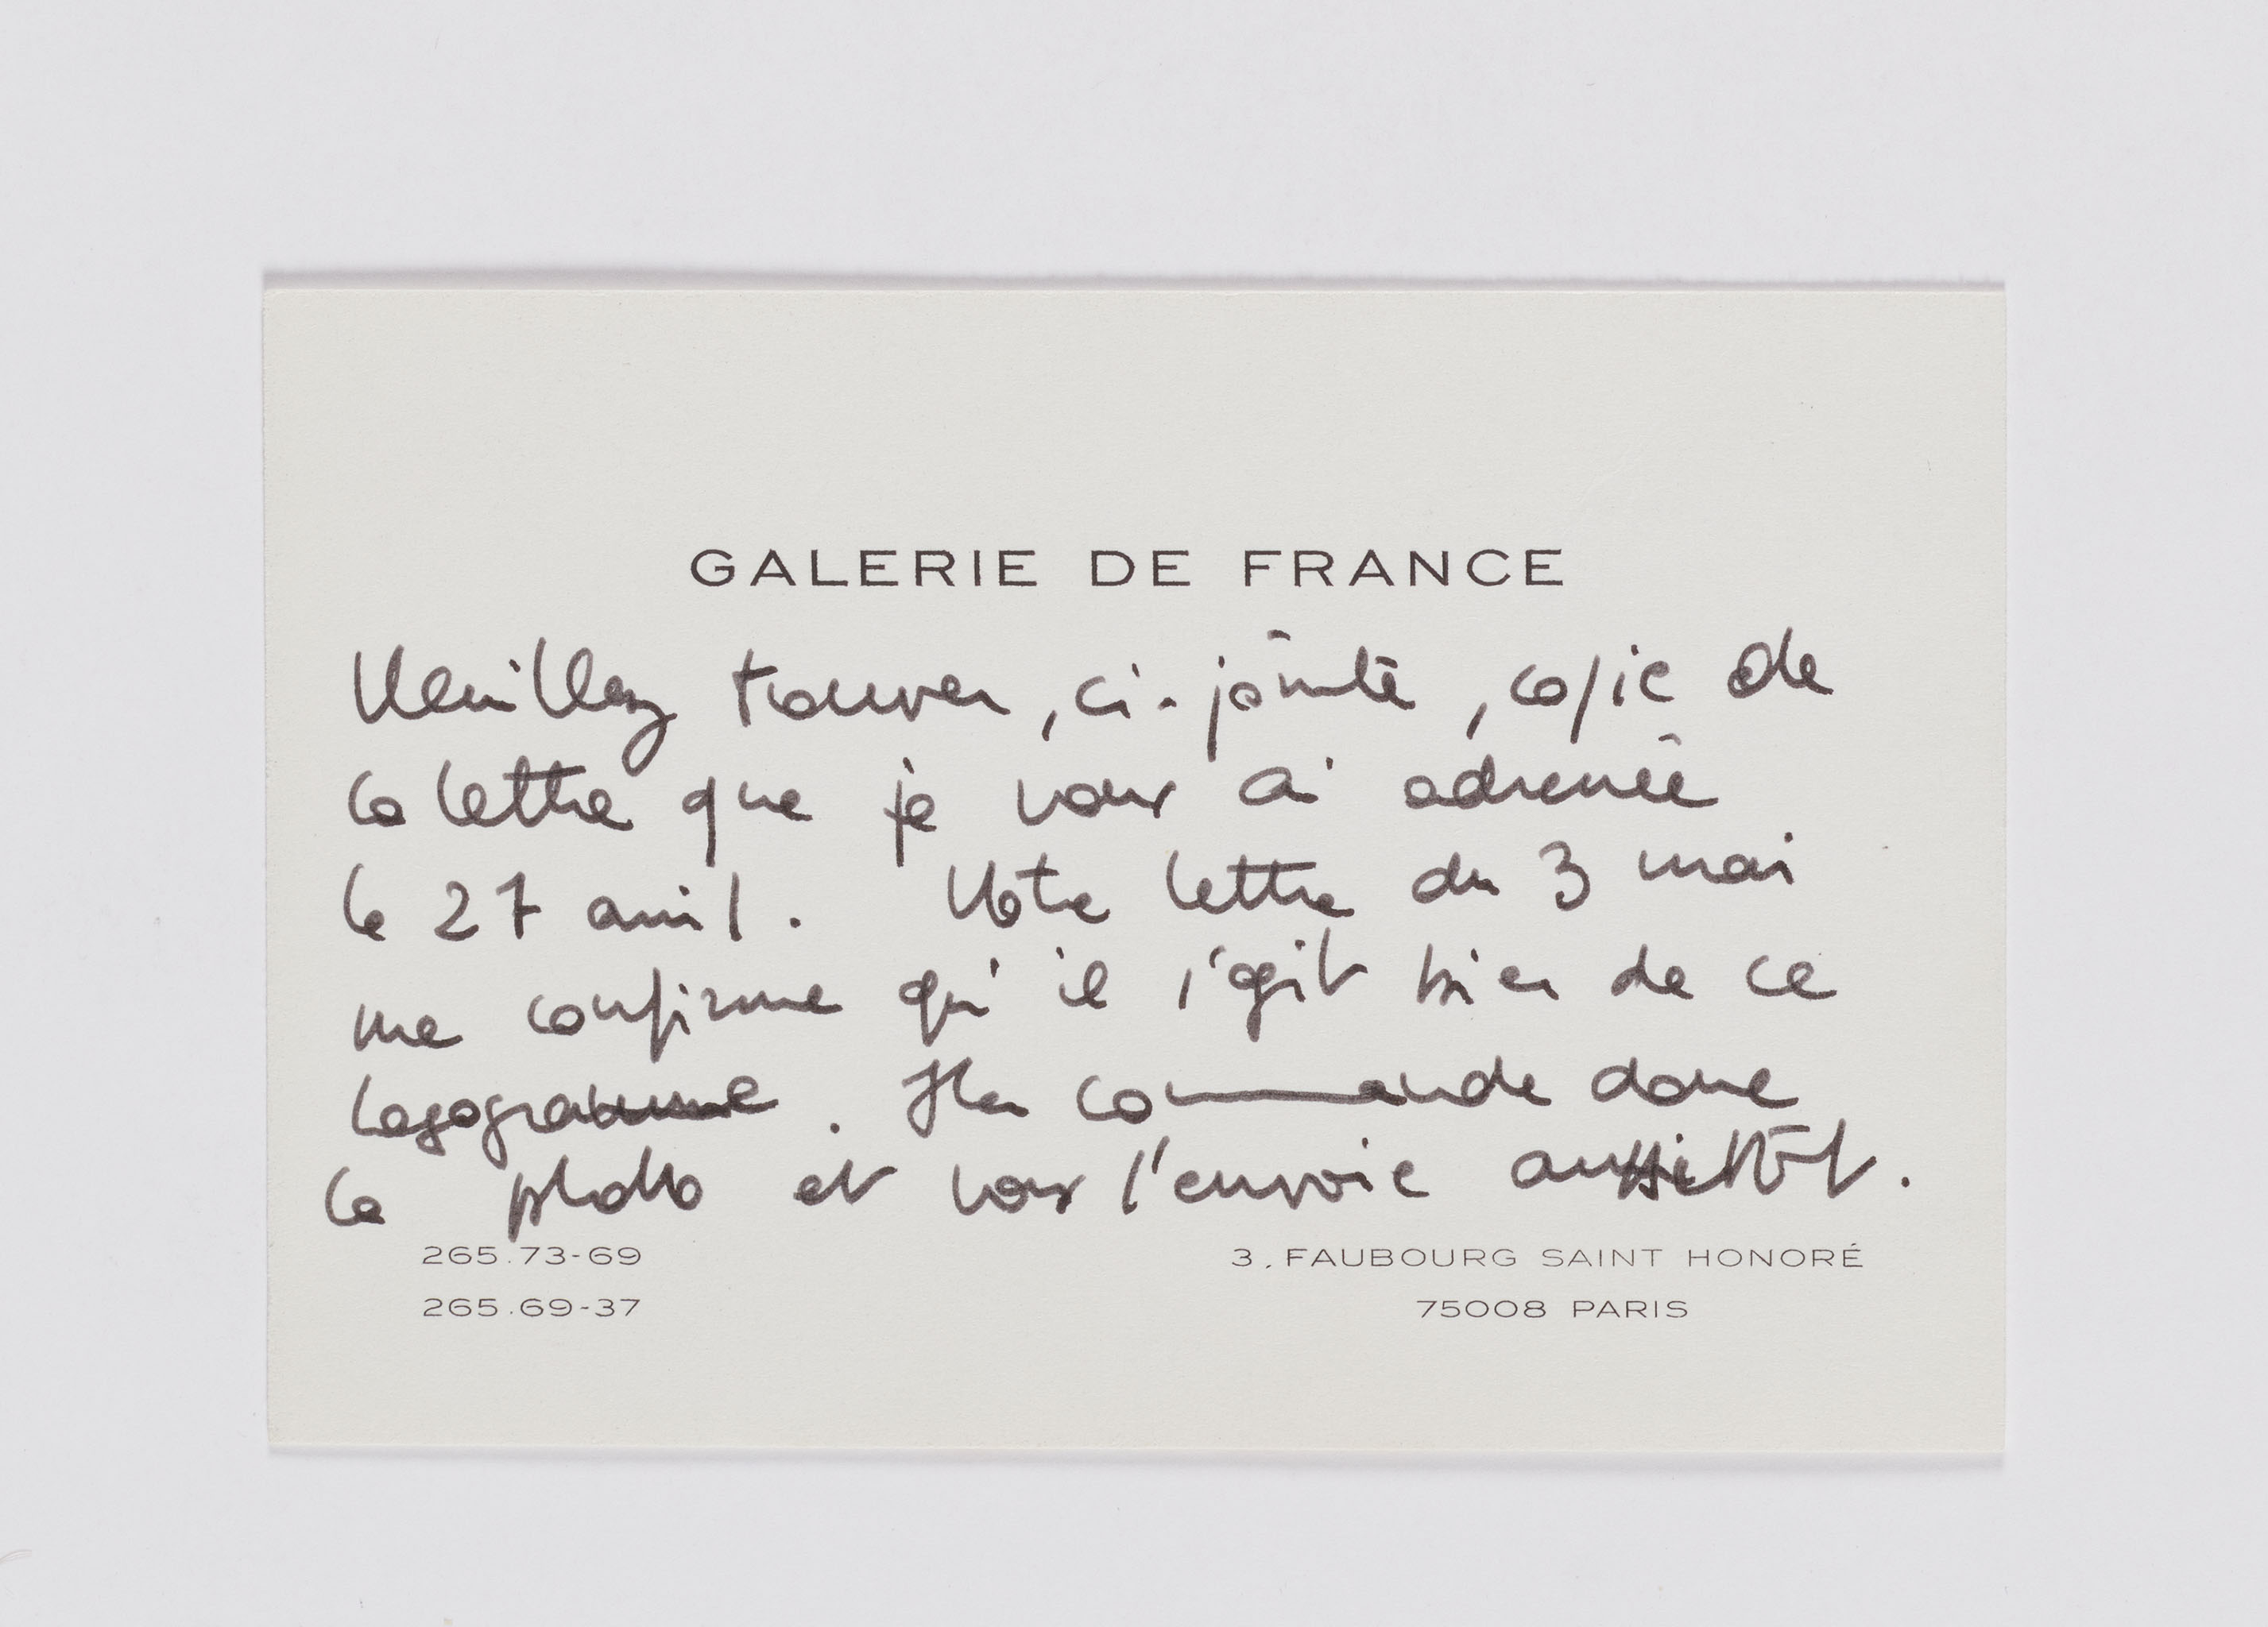 GALERIE DE FRANCE
Veuillez trouver, ci-jointe, copie de
la lettre que je vous ai adressée
le 27 avril. Votre lettre du 3 mai
me confirme qu'il s'agit bien de ce
logogramme. J'en commande donc
la photo et vous l'envoie aussitôt.
265.73-69
265.69-37
3, FAUBOURG SAINT HONORÉ
75008 PARIS